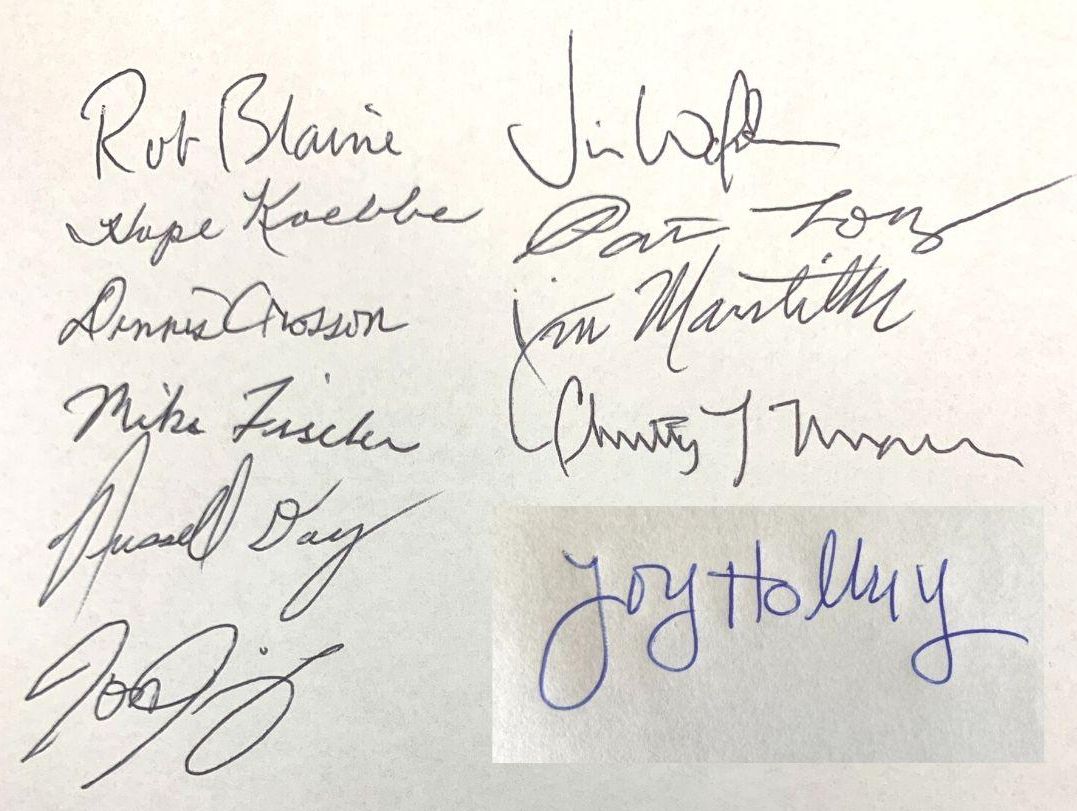 Rob Blaine
Hope Koebbe
Dennis Crosson
Mike Fischer
Russell Day
Jon
Jim
Pat Long
Jim
Christy L
Joy Holley